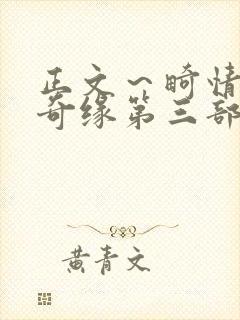 正文～畸情
奇缘第三部
黄青文